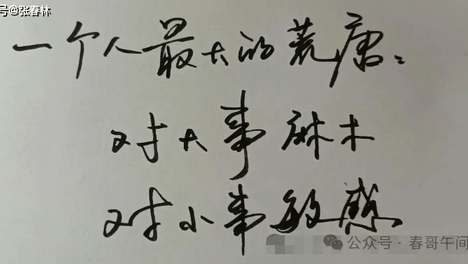 号@张春林
一个人最大的荒唐：
对大事麻木
对小事敏感
公众号·春哥午间